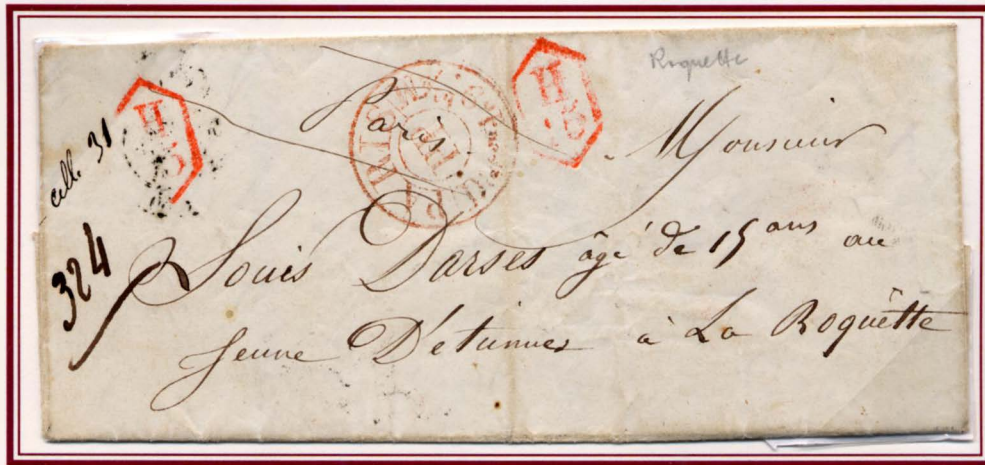 Roquette
cell. 31
324
Paris
Monsieur
Louis Darses âgé de 15 ans au
jeune Détenues à La Roquêtte
H
H